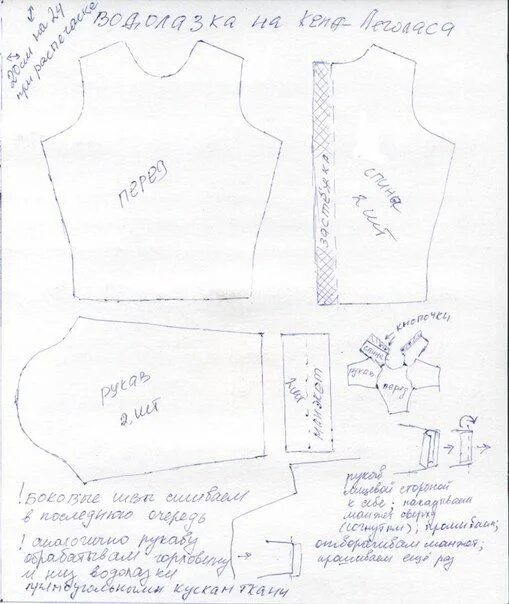 20см на 24
при распечатке
Водолазка на Кена-Леголаса
перед
застёжка
спина
2 шт
рукав
2 шт
2 шт
манжет
кнопочки
спинка
рукав
перед
рукав
лицевой стороной
к себе; накладываем
манжет сверху
(согнутый); прошиваем;
отворачиваем манжет;
прошиваем ещё раз
! Боковые швы сшиваем
в последнюю очередь
! аналогично рукаву
обрабатываем горловину
и низ водолазки
прямоугольными кусками ткани